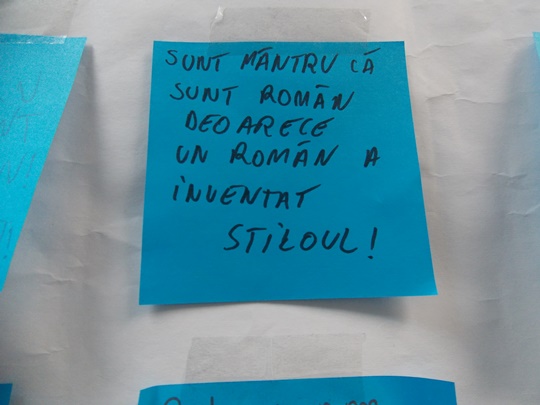 SUNT MÂNTRU CĂ
SUNT ROMÂN
DEOARECE
UN ROMÂN A
INVENTAT
STILOUL!